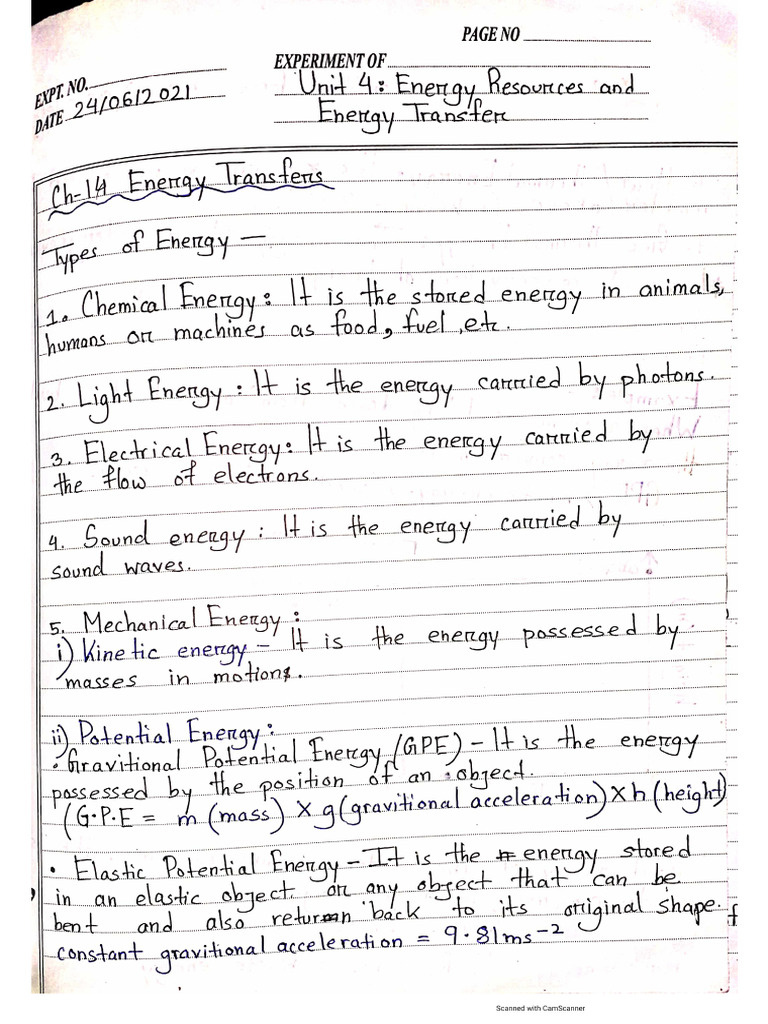 PAGE NO
EXPT. NO.
EXPERIMENT OF
DATE 24/06/2021
Unit 4: Energy Resources and
Energy Transfer
Ch-14 Energy Transfers
Types of Energy —
1. Chemical Energy: It is the stored energy in animals,
humans or machines as food, fuel, etc.
2. Light Energy: It is the energy carried by photons.
3. Electrical Energy: It is the energy carried by
the flow of electrons.
4. Sound energy: It is the energy carried by
sound waves.
5. Mechanical Energy:
i) Kinetic energy - It is the energy possessed by
masses in motions.
ii) Potential Energy:
• Gravitional Potential Energy (GPE) - It is the energy
possessed by the position of an object.
(G.P.E = m (mass) X g (gravitional acceleration) X h (height)
• Elastic Potential Energy - It is the energy stored
in an elastic object or any object that can be
bent and also return back to its original shape.
constant gravitional acceleration = 9.81ms-2
Scanned with CamScanner